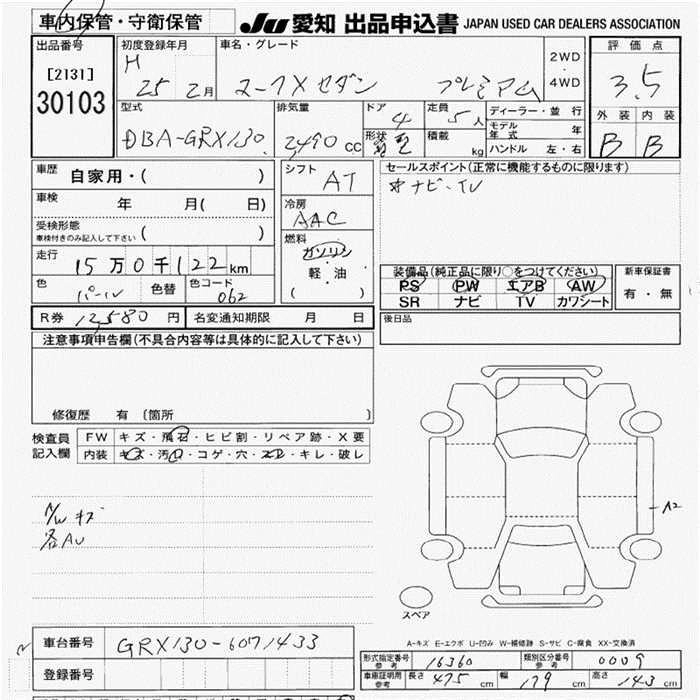 車内保管・守衛保管
JU 愛知 出品申込書 JAPAN USED CAR DEALERS ASSOCIATION
出品番号 初度登録年月 車名・グレード 2WD・4WD 評価点
[2131] H
30103 25 2月 マークX セダン プレミアム 3.5
型式 排気量 ドア 定員 ディーラー・並行 外装 内装
DBA-GRX130 2490 CC 4 5人 モデル年式 年 B B
形状 積載 kg ハンドル 左・右
車歴 自家用・( ) シフト AT セールスポイント(正常に機能するものに限ります)
車検 年 月( 日) 冷房 AAC ナビ・TV
受検形態 ( )
車検付きのみ記入して下さい
燃料 ガソリン 軽・油 ( )
走行 15万0千122km
装備品(純正品に限り○をつけてください) 新車保証書
PS PW エアB AW 有・無
SR ナビ TV カワシート
色 パール 色替 色コード 062
R券 12,580円 名変通知期限 月 日 後日品
注意事項申告欄(不具合内容等は具体的に記入して下さい)
修復歴 有 〔箇所 〕
検査員記入欄 FW キズ・飛石・ヒビ割・リペア跡・X要
内装 キズ・汚レ・コゲ・穴・スレ・キレ・破レ
A2
P/W キズ
各AU
スペア
A-キズ E-エクボ U-凹み W-補修跡 S-サビ C-腐食 XX-交換済
車台番号 GRX130-6071433
登録番号
形式指定番号 参考 16360 類別区分番号 参考 0009
車庫証明用 参考 長さ 475 cm 幅 179 cm 高さ 143 cm